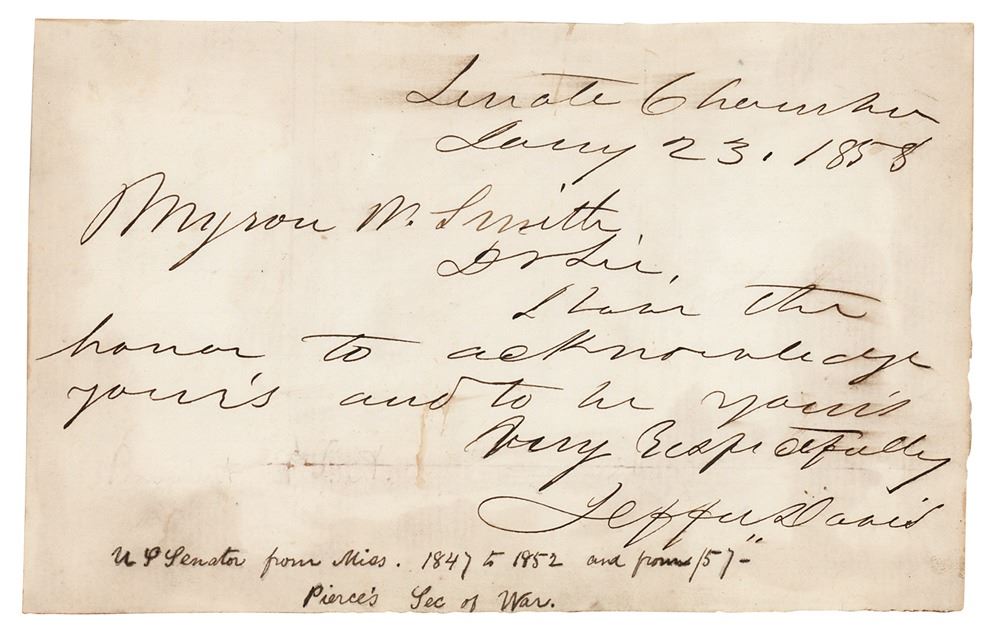 Senate Chamber
Jany 23. 1858
Myron W. Smith
Dr Sir,
I have the
honor to acknowledge
your's and to be your's
Very Respectfully
Jeffer Davis
U S Senator from Miss. 1847 to 1852 and from /57-"
Pierce's Sec of War.